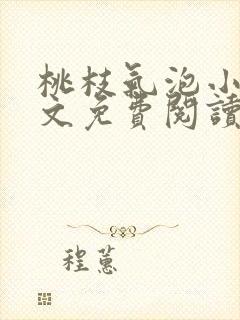 桃枝氣泡小
文免費閱讀
程蕙